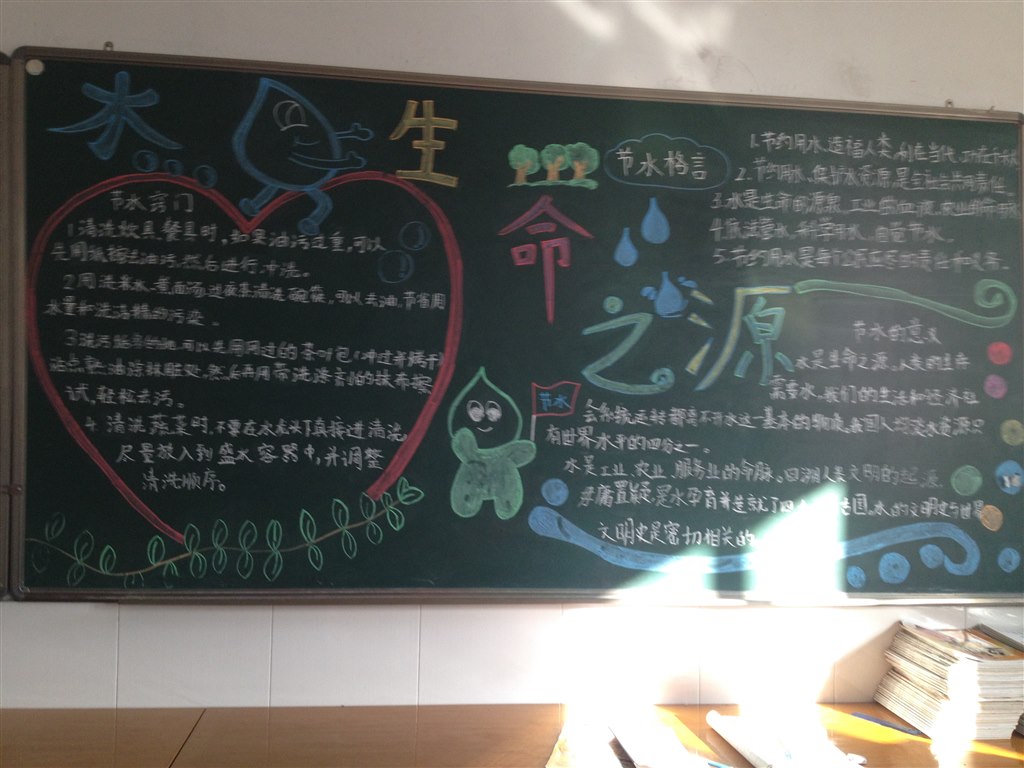 水 生
命
之源
节水窍门
1.清洗炊具、餐具时,如果油污过重,可以
先用
去油污,然后进行冲洗。
2.用洗米水、煮面汤、过夜茶清洗碗筷,可以去油,节省用
水量和洗洁精的污染。
可以先用用过的茶叶包(冲过并晾干)
沾点熟油涂抹脏处,然后再用带洗涤剂的抹布擦
试,轻松去污。
4.清洗蔬菜时,不要在水龙头下直接进行清洗,
尽量放入到盛水容器中,并调整
清洗顺序。
节水格言
1.节约用水,造福人类,利在当代,功在千秋
2.节约用水、保护水资源,是全社会共同责任
3.水是生命的源泉、工业的血液、农业的命
科学用水、自觉节水。
5.节约用水是每个公民应尽的责任
节水的意义
水是生命之源。人类的生存
需要水,我们的生活和经济社
会系统运转都离不开水这一基本的物质。我国人均淡水资源只
有世界水平的四分之一。
水是工业、农业、服务业的命脉。回溯人类文明的起源,
毋庸置疑是水孕育并造就了四
国。水的文明史与世界
文明史是密切相关的
节水